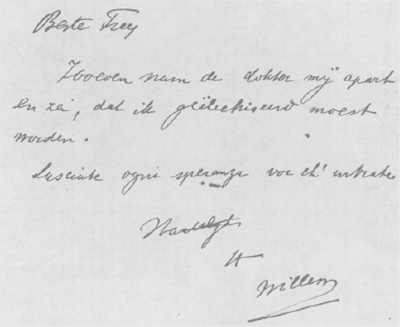 Beste Frey
Zooeven nam de dokter mij apart
en zei, dat ik geëlectriseerd moest
worden.
Lasciate ogni speranza voi ch' entrate
Hartelijk
tt
Willem